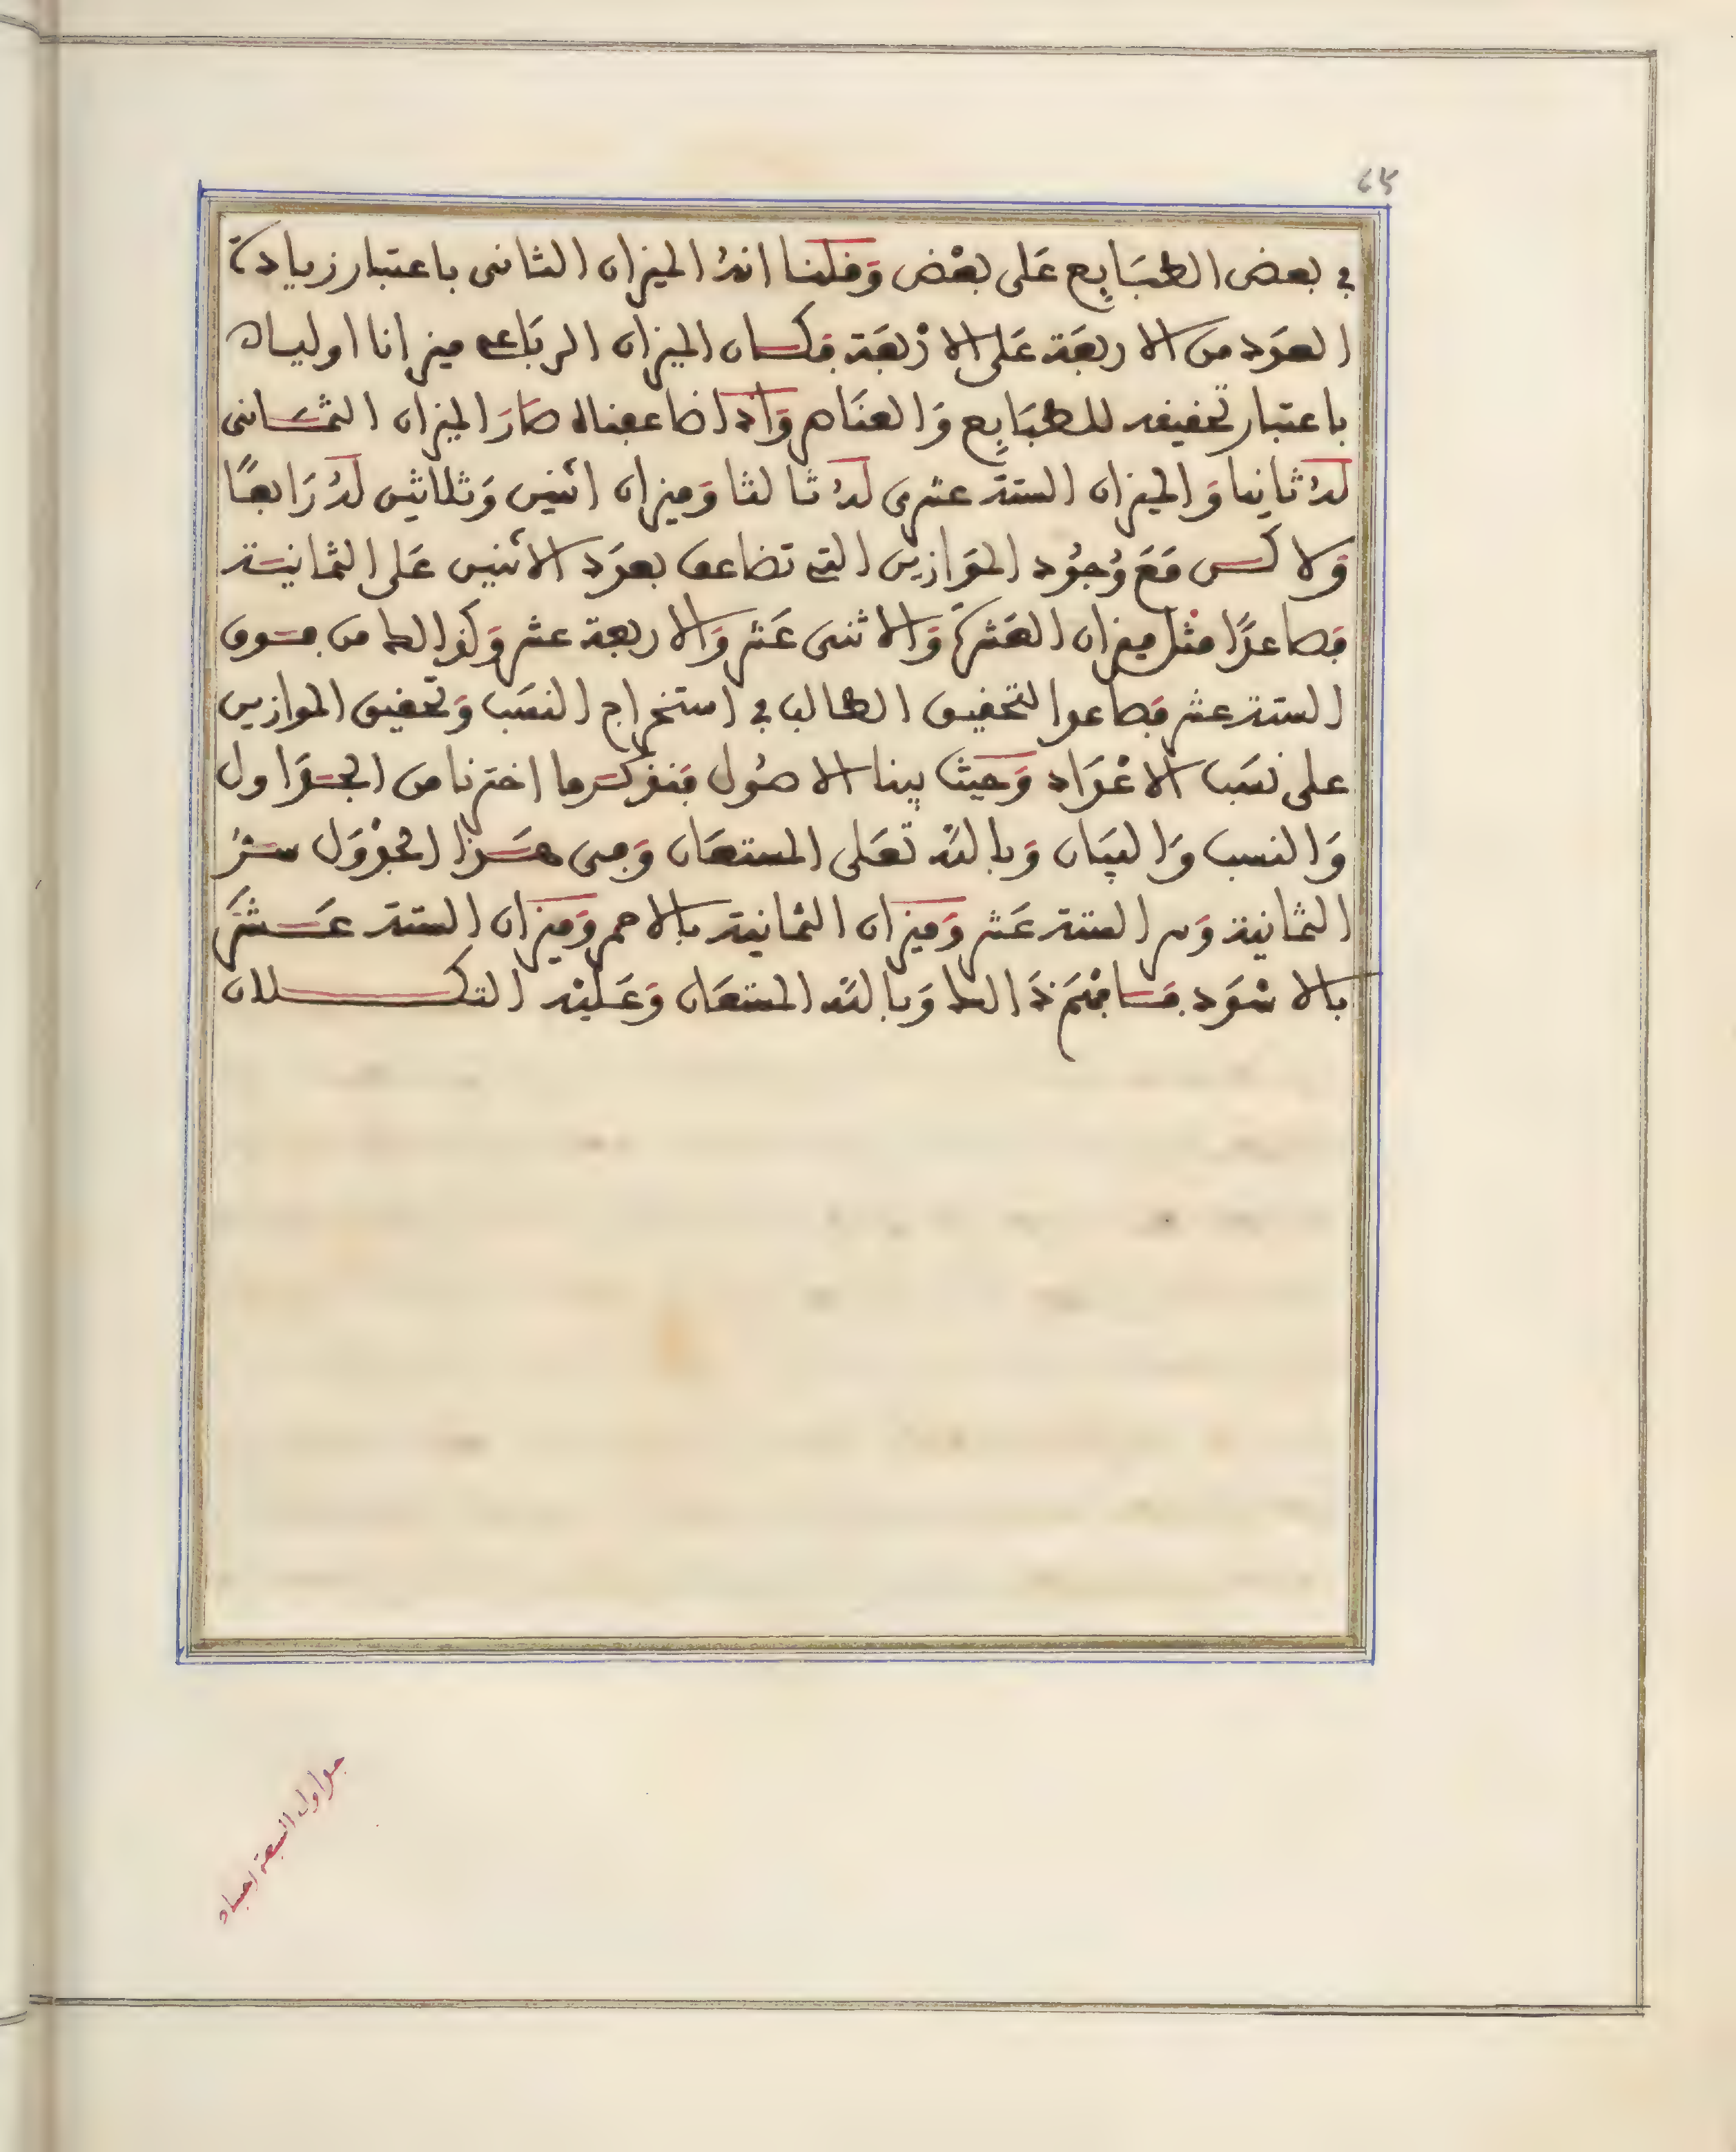 ٦٥
في بعض الطبَايِع عَلى بعْض وَقلنا انهُ الميزان الثانى باعتبار زيادة
العدَد من الاربعَة عَلى الارْبعَة فكان الميزان الربَاعي ميزانا اوليا
باعتبار تحقيقه للطبَايِع وَالعنَاصر وَاذا ضاعفناه صَارَ الميزان الثمانى
لهُ ثانيا وَالميزان الستة عشرى لهُ ثالثا وَميزان اثنين وَثلاثين لهُ رَابعًا
وَلاكن مَعَ وُجوُد الموَازين التي تضاعف بعدَد الاثنين عَلى الثمانيَة
فصاعدًا مثْل ميزان العَشرَة وَالاثنى عَشر وَالاربعة عشر وَكذالك من فوق
الستة عشر فصاعدا لتحقيق الطالب في استخراج النسَب وَتحقيق الموازين
على نسَب الاعْدَاد وَحيث بينا الاصُول فنذكر ما اخترنا من الجدَاول
وَالنسب وَالبيَان وَبالله تعَلى المستعَان وَفى هَذا الجدْوَل سرُ
الثمانية وَسر الستة عَشر وَميزان الثمانية بالاحمر وَميزان الستة عَشَرَ
بالاسْوَد فافهَم ذَالك وَبالله المستعَان وَعَليْه التكلان
جداول السبعة اجساد